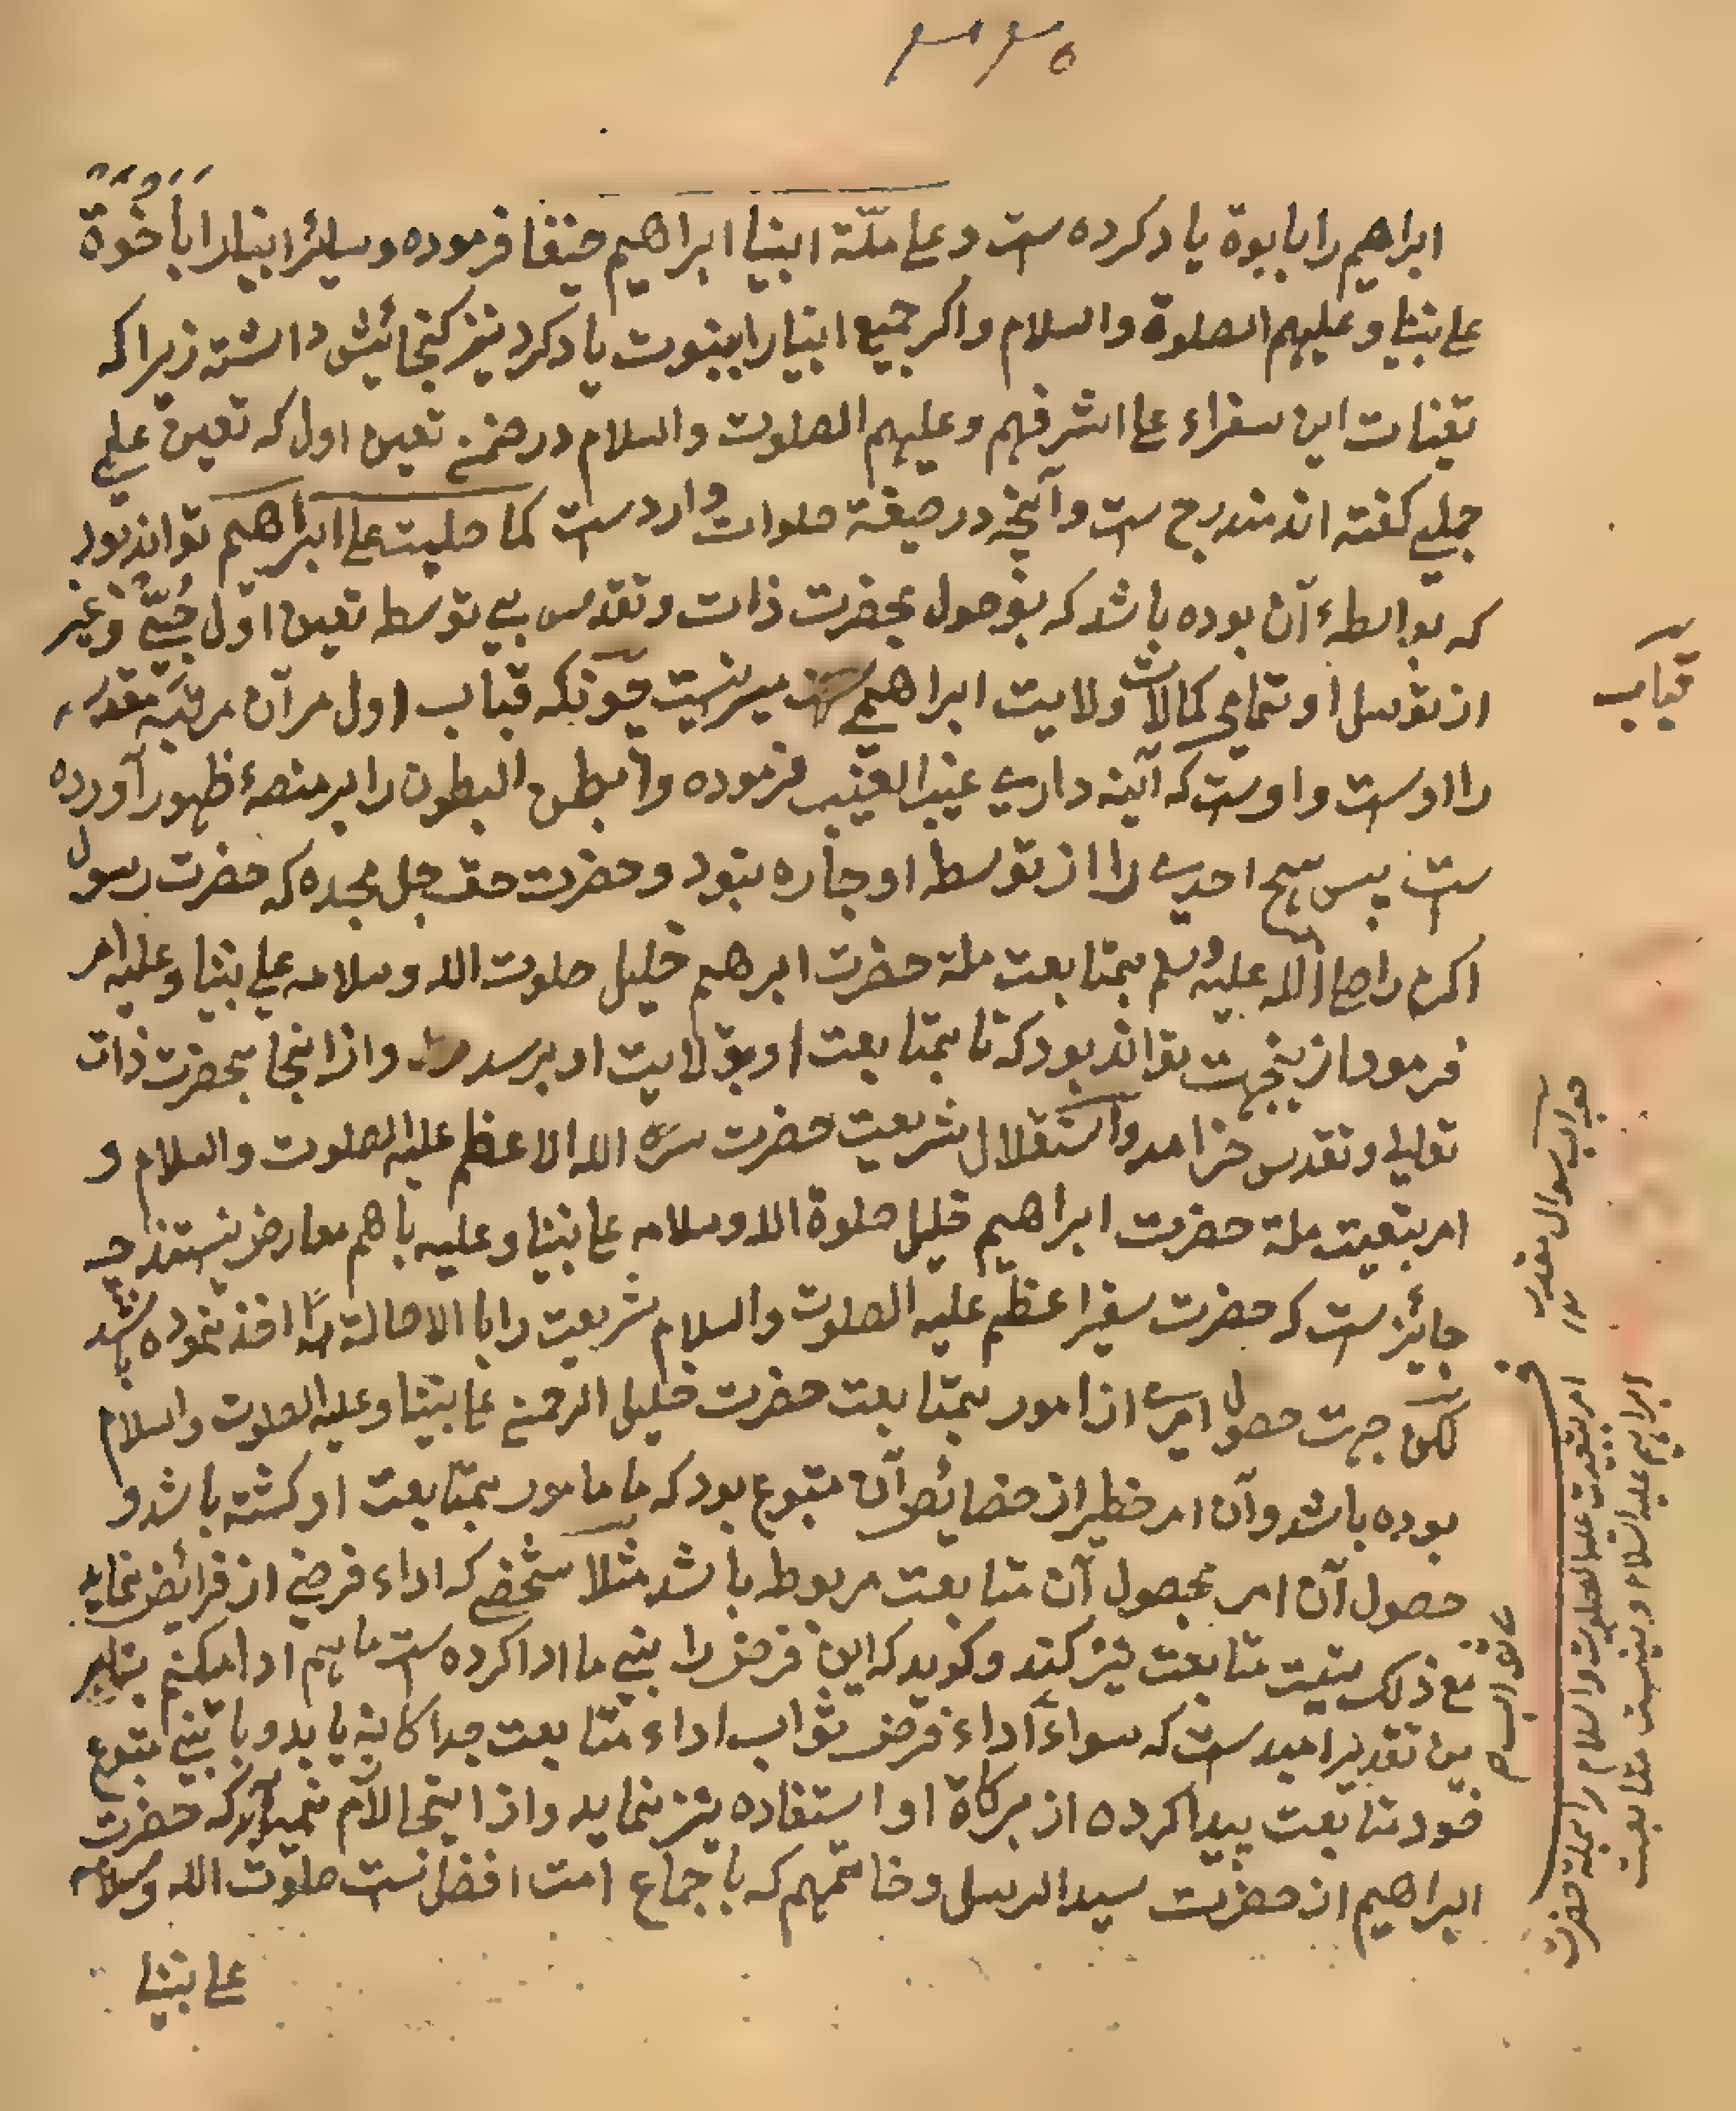 ابراهیم را بابوة یاد کرده ست و علی ملّة ابینا ابراهیم حنیفا فرموده و سائر انبیا را باُخُوّة
علی نبینا و علیهم الصلوة والسلام و اگر جمیع انبیا را ببنوت یاد کرد نیز گنجائیش داشته زیرا که
تعینات این سفراء علی اشرفهم و علیهم الصلوت والسلام در ضمن تعین اول که تعین علمی
جملی گفته اند مندرج ست و آنچه در صیغهٔ صلوات وارد ست کما صلیت علی ابراهیم تواند بود
که بواسطهٔ آن بوده باشد که بوصول بحضرت ذات و تقدس بی توسط تعین اوّل حُبّی و غیر
از توسل او تمامی کمالات ولایت ابراهیمی میسر نیست چونکه قباب اول مر آن مرتبهٔ مقدسه
را اوست و اوست که آئینه داری غیب الغیب فرموده و ابطن البطون را بر منصهٔ ظهور آورده
ست پس هیچ احدی را از توسط او چاره نبود و حضرت حق جل مجده که حضرت رسول
اکرم را صلی الله علیه وسلم بمتابعت ملة حضرت ابرهیم خلیل صلوت الله وسلامه علی نبینا و علیه امر
فرمود ازینجهت تواند بود که تا بمتابعت او بولایت او برسد و ازانجا بحضرت ذات
تعالی و تقدس خرامد و استقلال شریعت حضرت سرّه الله الاعظم علیه الصلوت والسلام و
امر بتبعیت ملة حضرت ابراهیم خلیل صلوة الله وسلامه علی نبینا و علیه باهم معارض نیستند چه
جائز ست که حضرت سفیر اعظم علیه الصلوت والسلام شریعت را بالاصالة اخذ نموده باشد
لکن جهت حصول امری از امور بمتابعت حضرت خلیل الرحمن علی نبینا و علیه الصلوت والسلام
بوده باشد و آن امر خطیر از خصائص آن متبوع بود که ما مامور بمتابعت او گشته باشد و
حصول آن امر بحصول آن متابعت مربوط باشد مثلا شخصی که اداء فرضی از فرائض نماید
مع ذلک بنیت متابعت نیز کند و گوید که این فرض را نبی ما ادا کرده ست ما هم ادا میکنم بنابر
ین تقدیر امید ست که سواء اداء فرض ثواب اداء متابعت جداگانه یابد و با نبی متبوع
خود متابعت پیدا کرده از برکاة او استفاده نیز نماید و از اینجا لازم نمیآید که حضرت
ابراهیم از حضرت سیدالرسل و خاتمهم که باجماع امت افضل ست صلوت الله وسلامه
علی نبینا
قباب
جواب سوال مقدر
امر بتبعیت علیه الصلوت والسلام را بملة حضرت
ابراهیم علیه السلام و بنیت متابعت